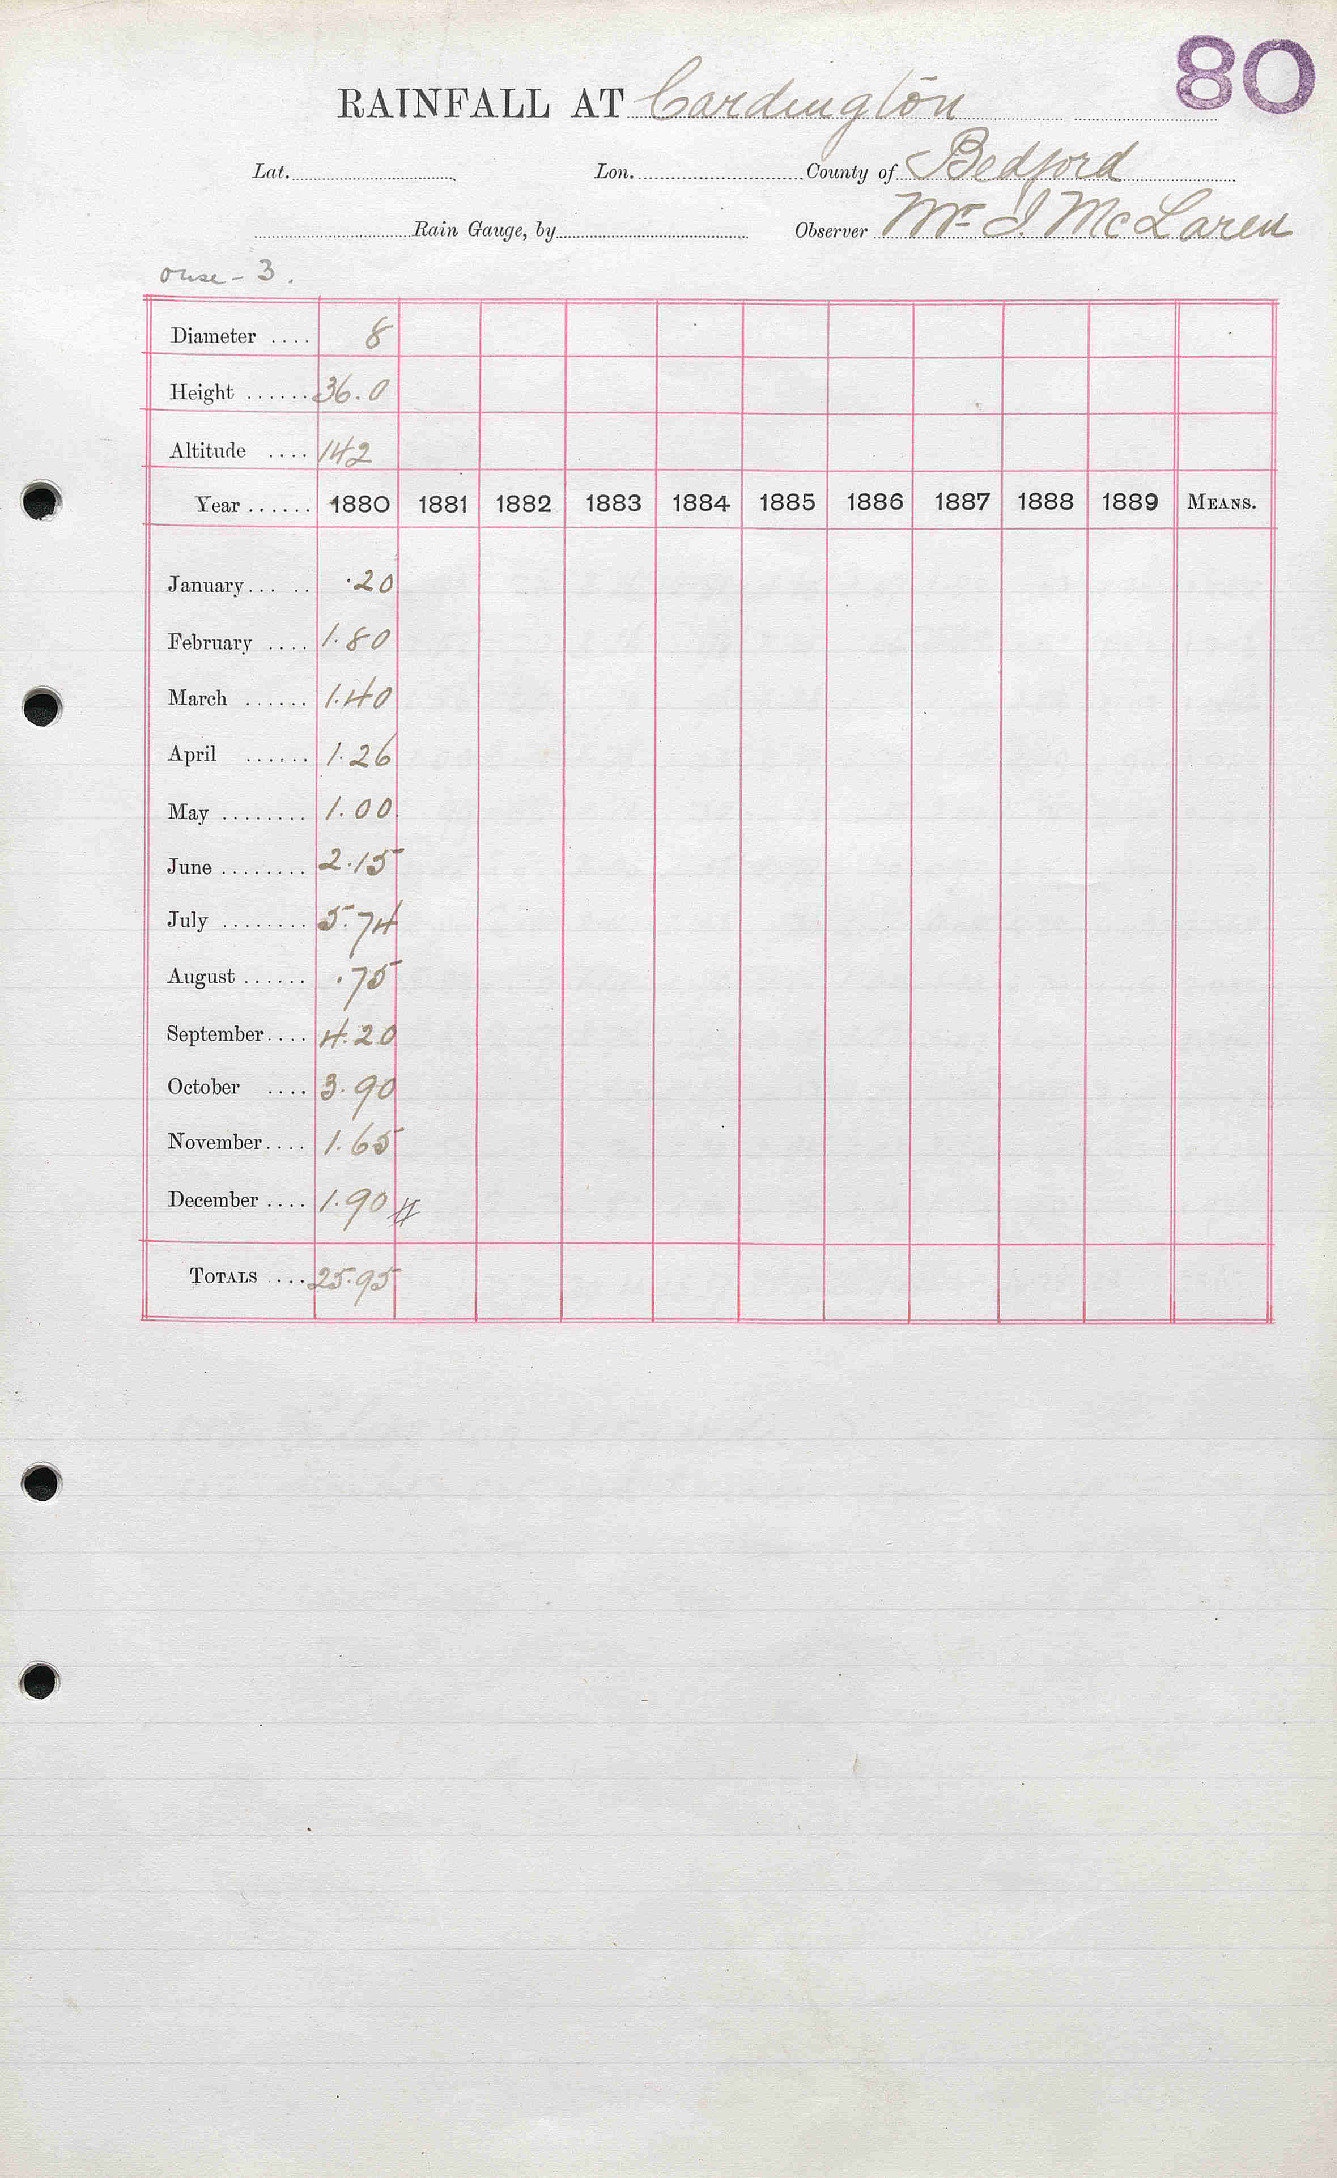 80
RAINFALL AT Cardington
Lat. Lon. County of Bedford
Rain Gauge, by Observer Mr J. McLaren
Ouse - 3.
Diameter .... 8
Height ...... 36.0
Altitude .... 142
Year ...... 1880 1881 1882 1883 1884 1885 1886 1887 1888 1889 MEANS.
January... .. .20
February .... 1.80
March ...... 1.40
April ...... 1.26
May ........ 1.00
June ........ 2.15
July ........ 5.74
August ...... .75
September.... 4.20
October .... 3.90
November.... 1.65
December .... 1.90 #
TOTALS .... 25.95